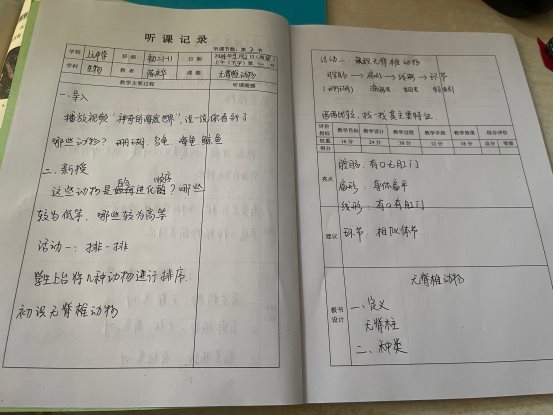 听课记录
听课节数：第2节
学校 班级 初二(1) 日期
上午（下午）第 节
学科 生物 教者 课题 无脊椎动物
教学主要过程 听课随感
一.导入
播放视频"神奇的海底世界",说一说你看到了
哪些动物? 珊瑚、乌龟、海兔、鲸鱼
二.新授
这些动物是 进化 哪些
较为低等，哪些较为高等
活动一：排一排
学生上台将几种动物进行排序.
初设无脊椎动物
活动二、 无脊椎动物
腔肠 → 扁形 → 线形 → 环节
涡虫 蛔虫
比较，找一找其主要特征
评价指标 教学目标 教学设计 教学过程 教学手段 教学效果 综合评价
权重 16分 24分 30分 12分 18分 总分 等级
得分
亮点
腔肠：有口无肛门
扁形：身体扁平
线形：有口有肛门
建议
环节：相似体节.
板书设计
无脊椎动物
一、定义
无脊柱
二、种类